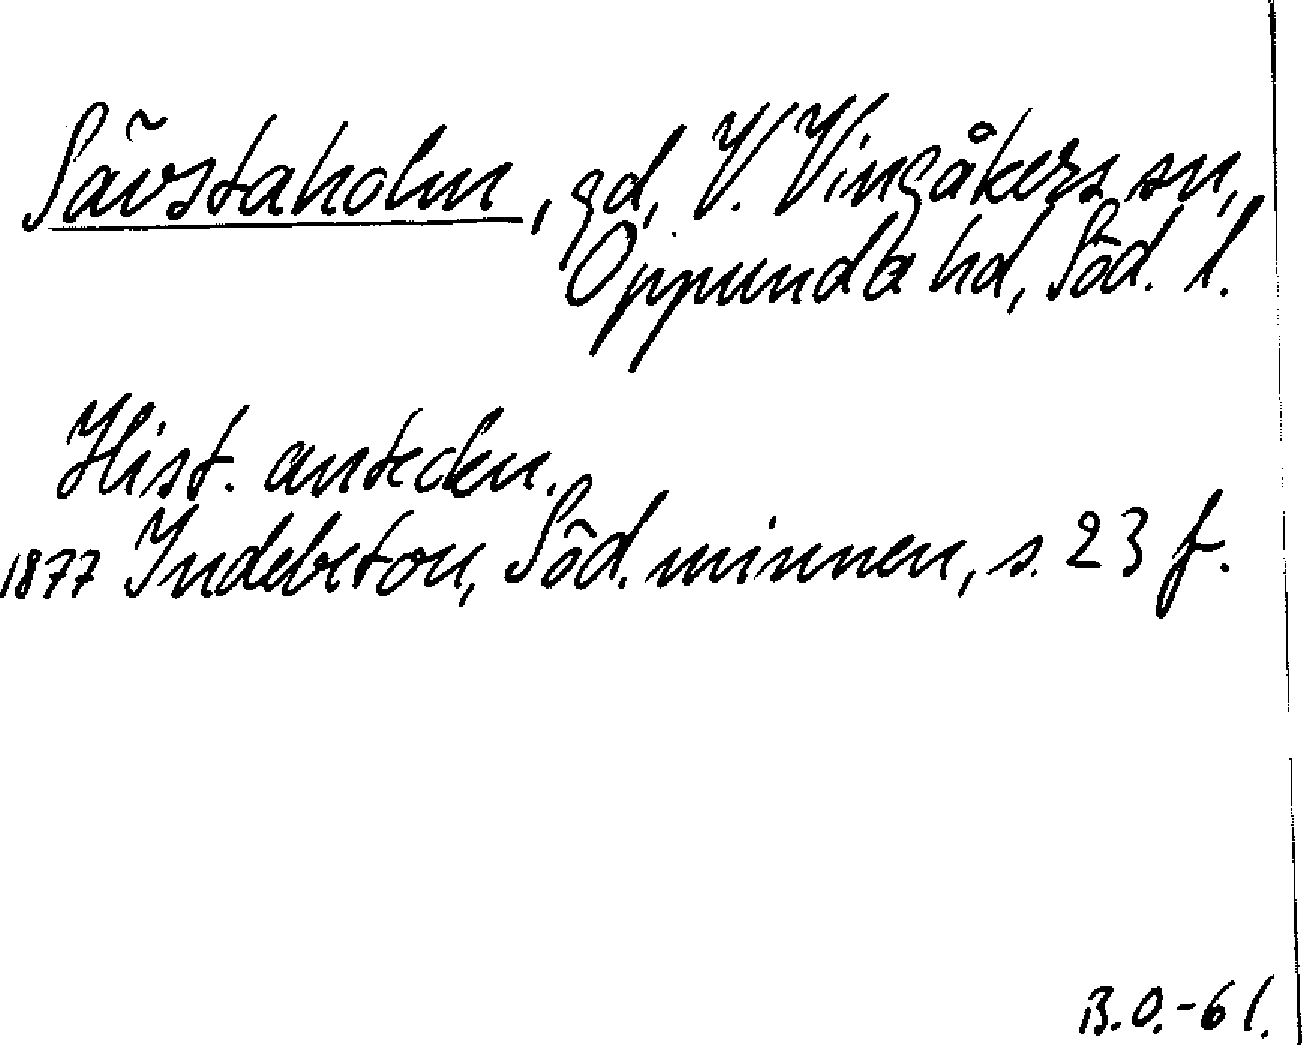 Sävstaholm, gd, V. Vingåkers sn,
Oppunda hd, Söd. l.
Hist. anteckn.
1877 Indebetou, Söd. minnen, s. 23 f.
B.O.-61.